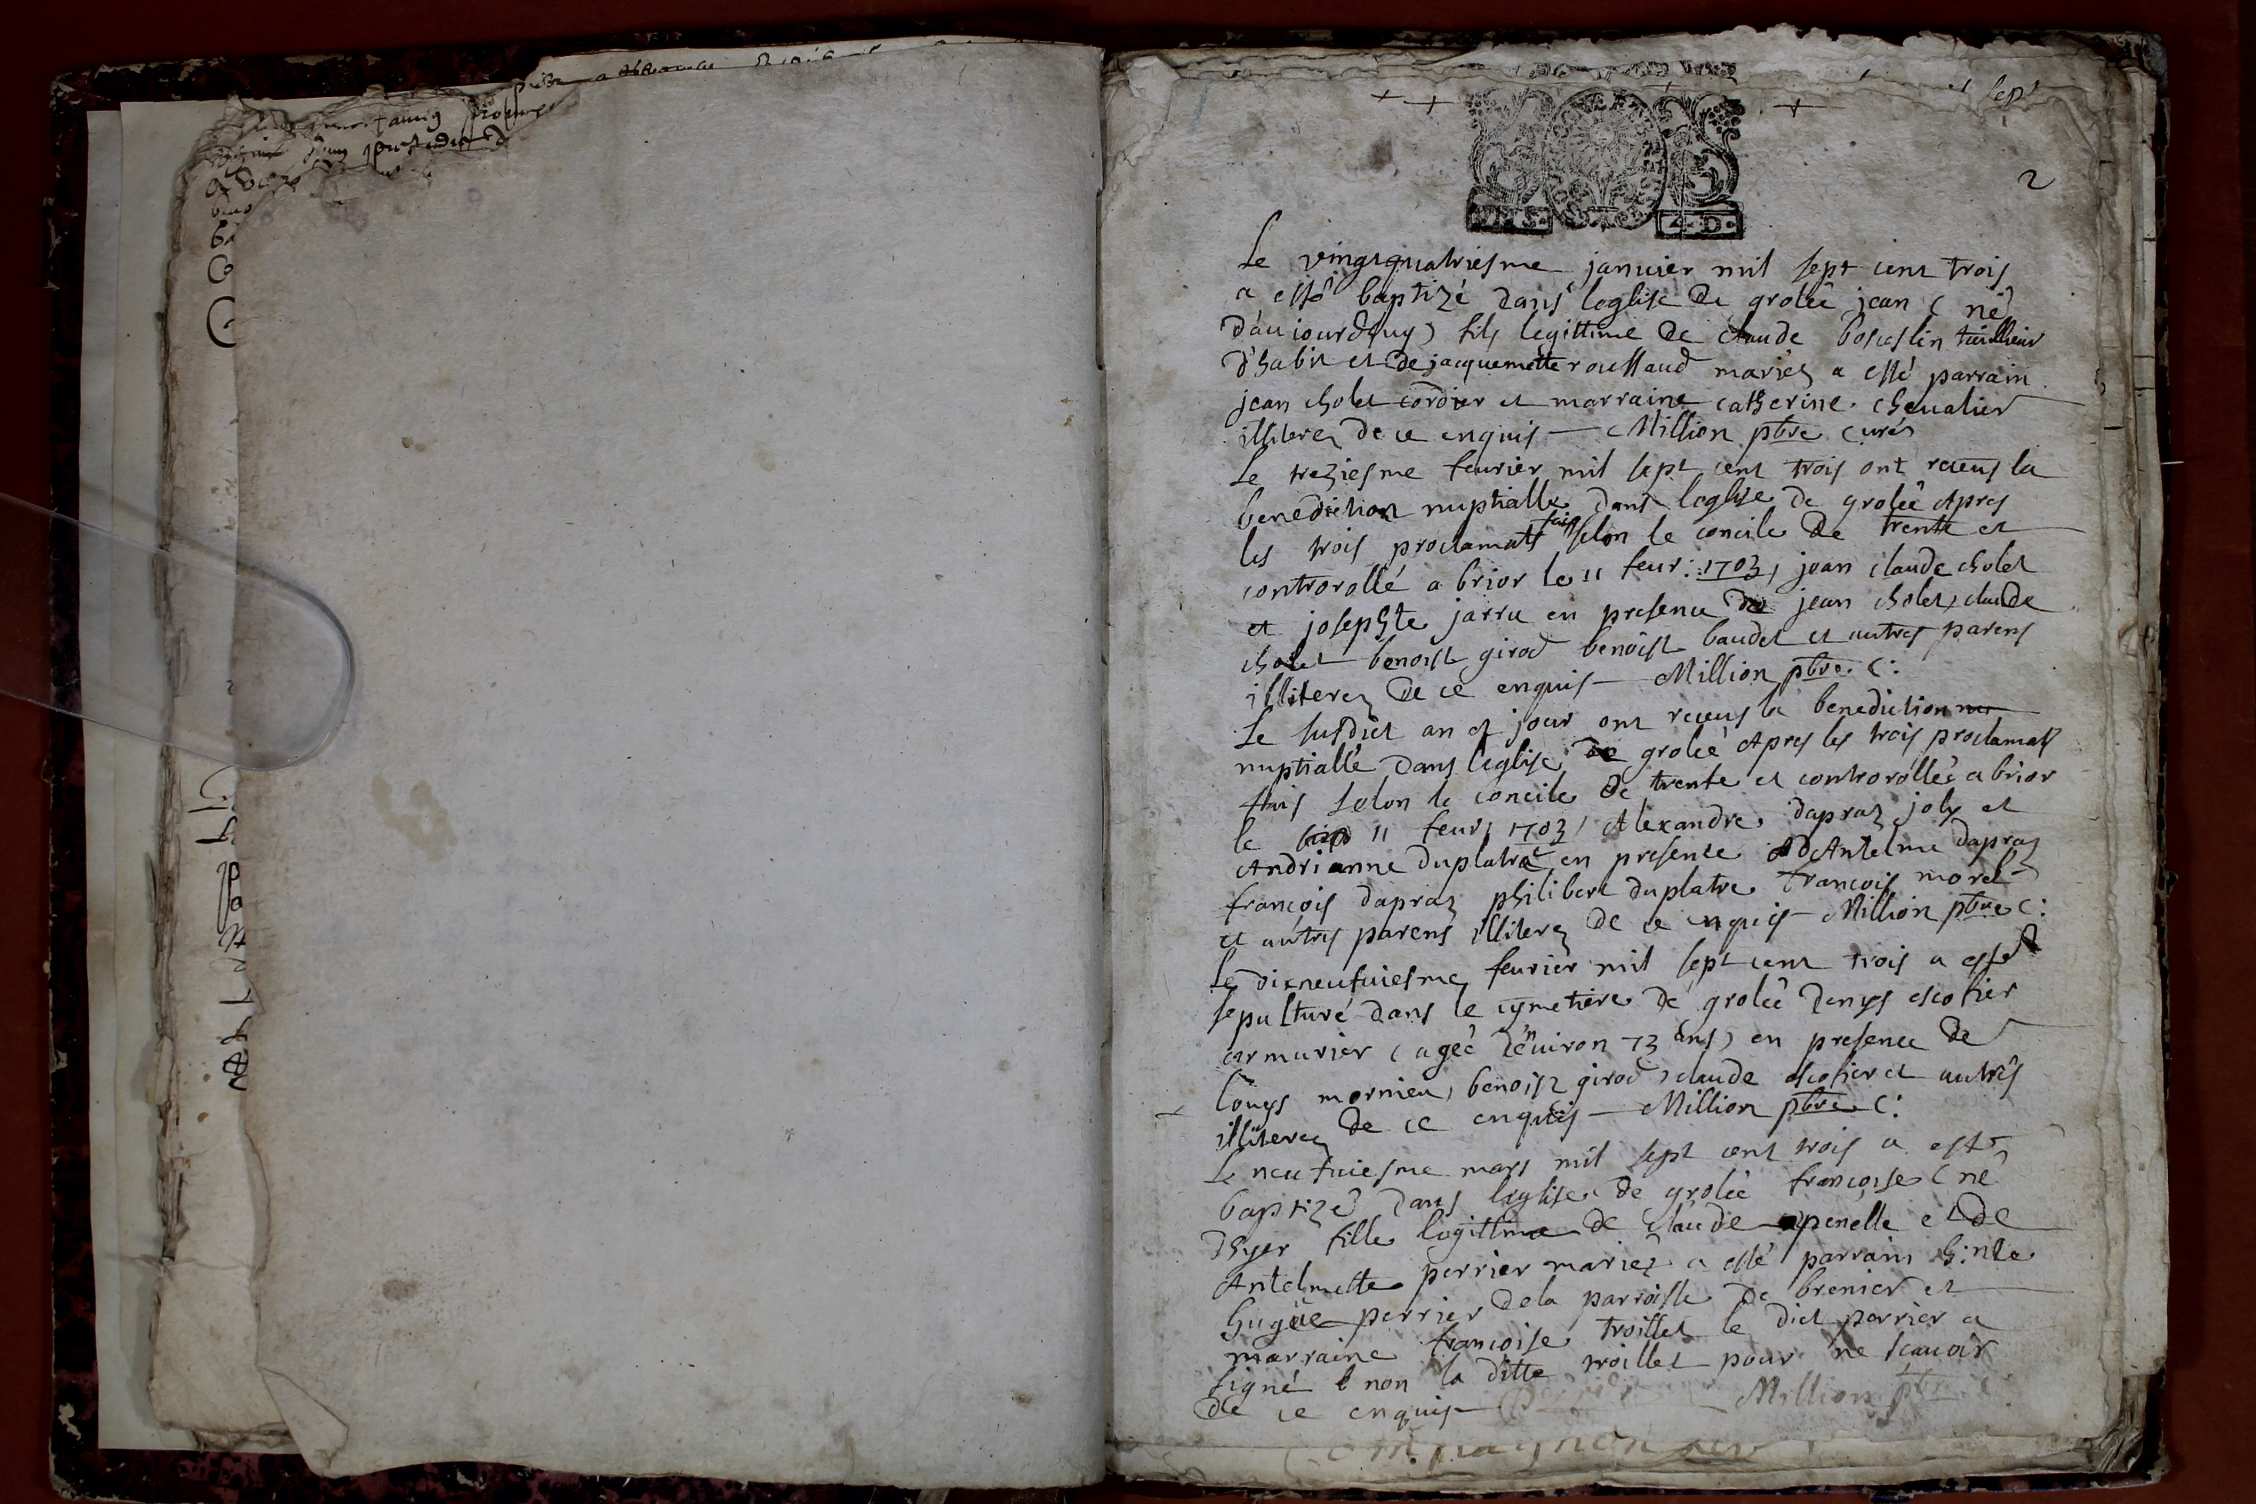 2
Le vingtquatriesme januier mil sept cent trois
a esté baptizé dans leglise de grolée jean ( né
daujourdhuy ) fils legittime de claude
d'habit et de jacquemette roussaud mariez a esté parrain
jean cholet cordier et marraine catherine cheualier
illiterez de ce enquis — Million pbre curé
Le treziesme feurier mil sept cent trois ont receus la
benediction nuptialle dans leglise de grolée Apres
les trois proclamats fais selon le concile de trente et
controrollé a brior le 11 feur: 1703, jean claude cholet
et josephte jarru en presence de jean cholet, claude
cholet benoist girod benoist baudet et autres parens
illiterez de ce enquis — Million pbre C:
Le susdict an et jour ont receus la benediction
nuptialle dans leglise de grolée Apres les trois proclamats
fais selon le concile de trente et controrollée a brior
le 11 feur, 1703, Alexandre dapraz joly et
Andrianne duplatre en presence dAntelme dapraz
francois dapraz philibert duplatre francois morel
et autres parens illiterez de ce enquis — Million pbre C:
Le dixneufuiesme feurier mil sept cent trois a esté
sepulturé dans le cymetiere de grolée denys escofier
armurier ( agéé denuiron 73 ans ) en presence de
Louys mornieu, benoist girod, claude escofier et autres
illiterez de ce enquis — Million pbre C:
Le neufuiesme mars mil sept cent trois a esté
baptizé dans leglise de grolée francoise ( né
dhyer fille legittime de claude penelle et de
Antelmette perrier mariez a esté parrain h:nte
hugue perrier dela parroisse de brenier et
marraine francoise troillet le dict perrier a
signé & non la ditte troillet pour ne scauoir
de ce enquis — perrier — Million pbre C: